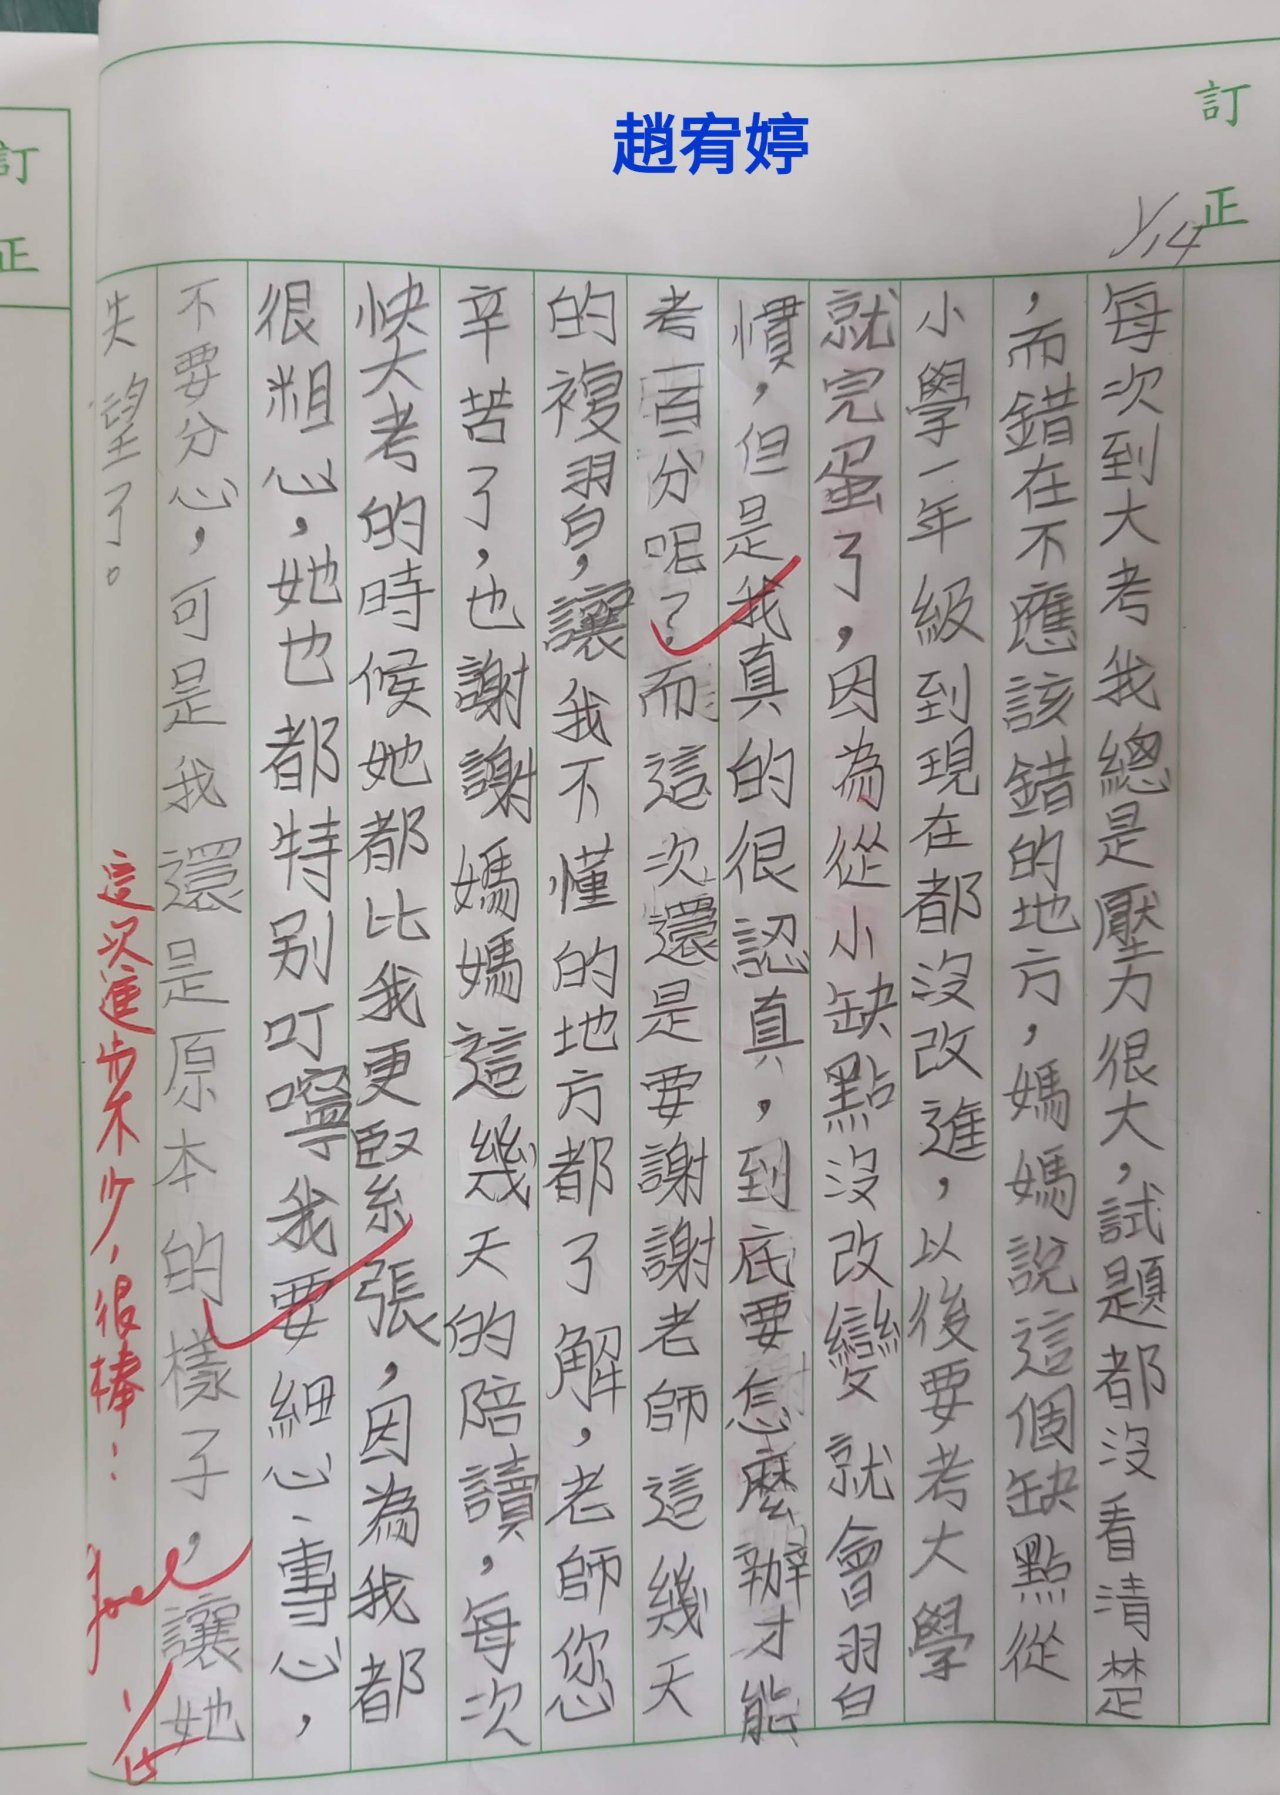 趙宥婷
訂正
1/14
每次到大考我總是壓力很大,試題都沒看清楚
,而錯在不應該錯的地方,媽媽說這個缺點從
小學一年級到現在都沒改進,以後要考大學
就完蛋了,因為從小缺點沒改變就會習
慣,但是我真的很認真,到底要怎麼辦才能
考百分呢?而這次還是要謝謝老師這幾天
的複習,讓我不懂的地方都了解,老師您
辛苦了,也謝謝媽媽這幾天的陪讀,每次
快大考的時候她都比我更緊張,因為我都
很粗心,她也都特別叮嚀我要細心、專心,
不要分心,可是我還是原本的樣子,讓她
失望了。
這次進步不少,很棒:
1/15
訂正